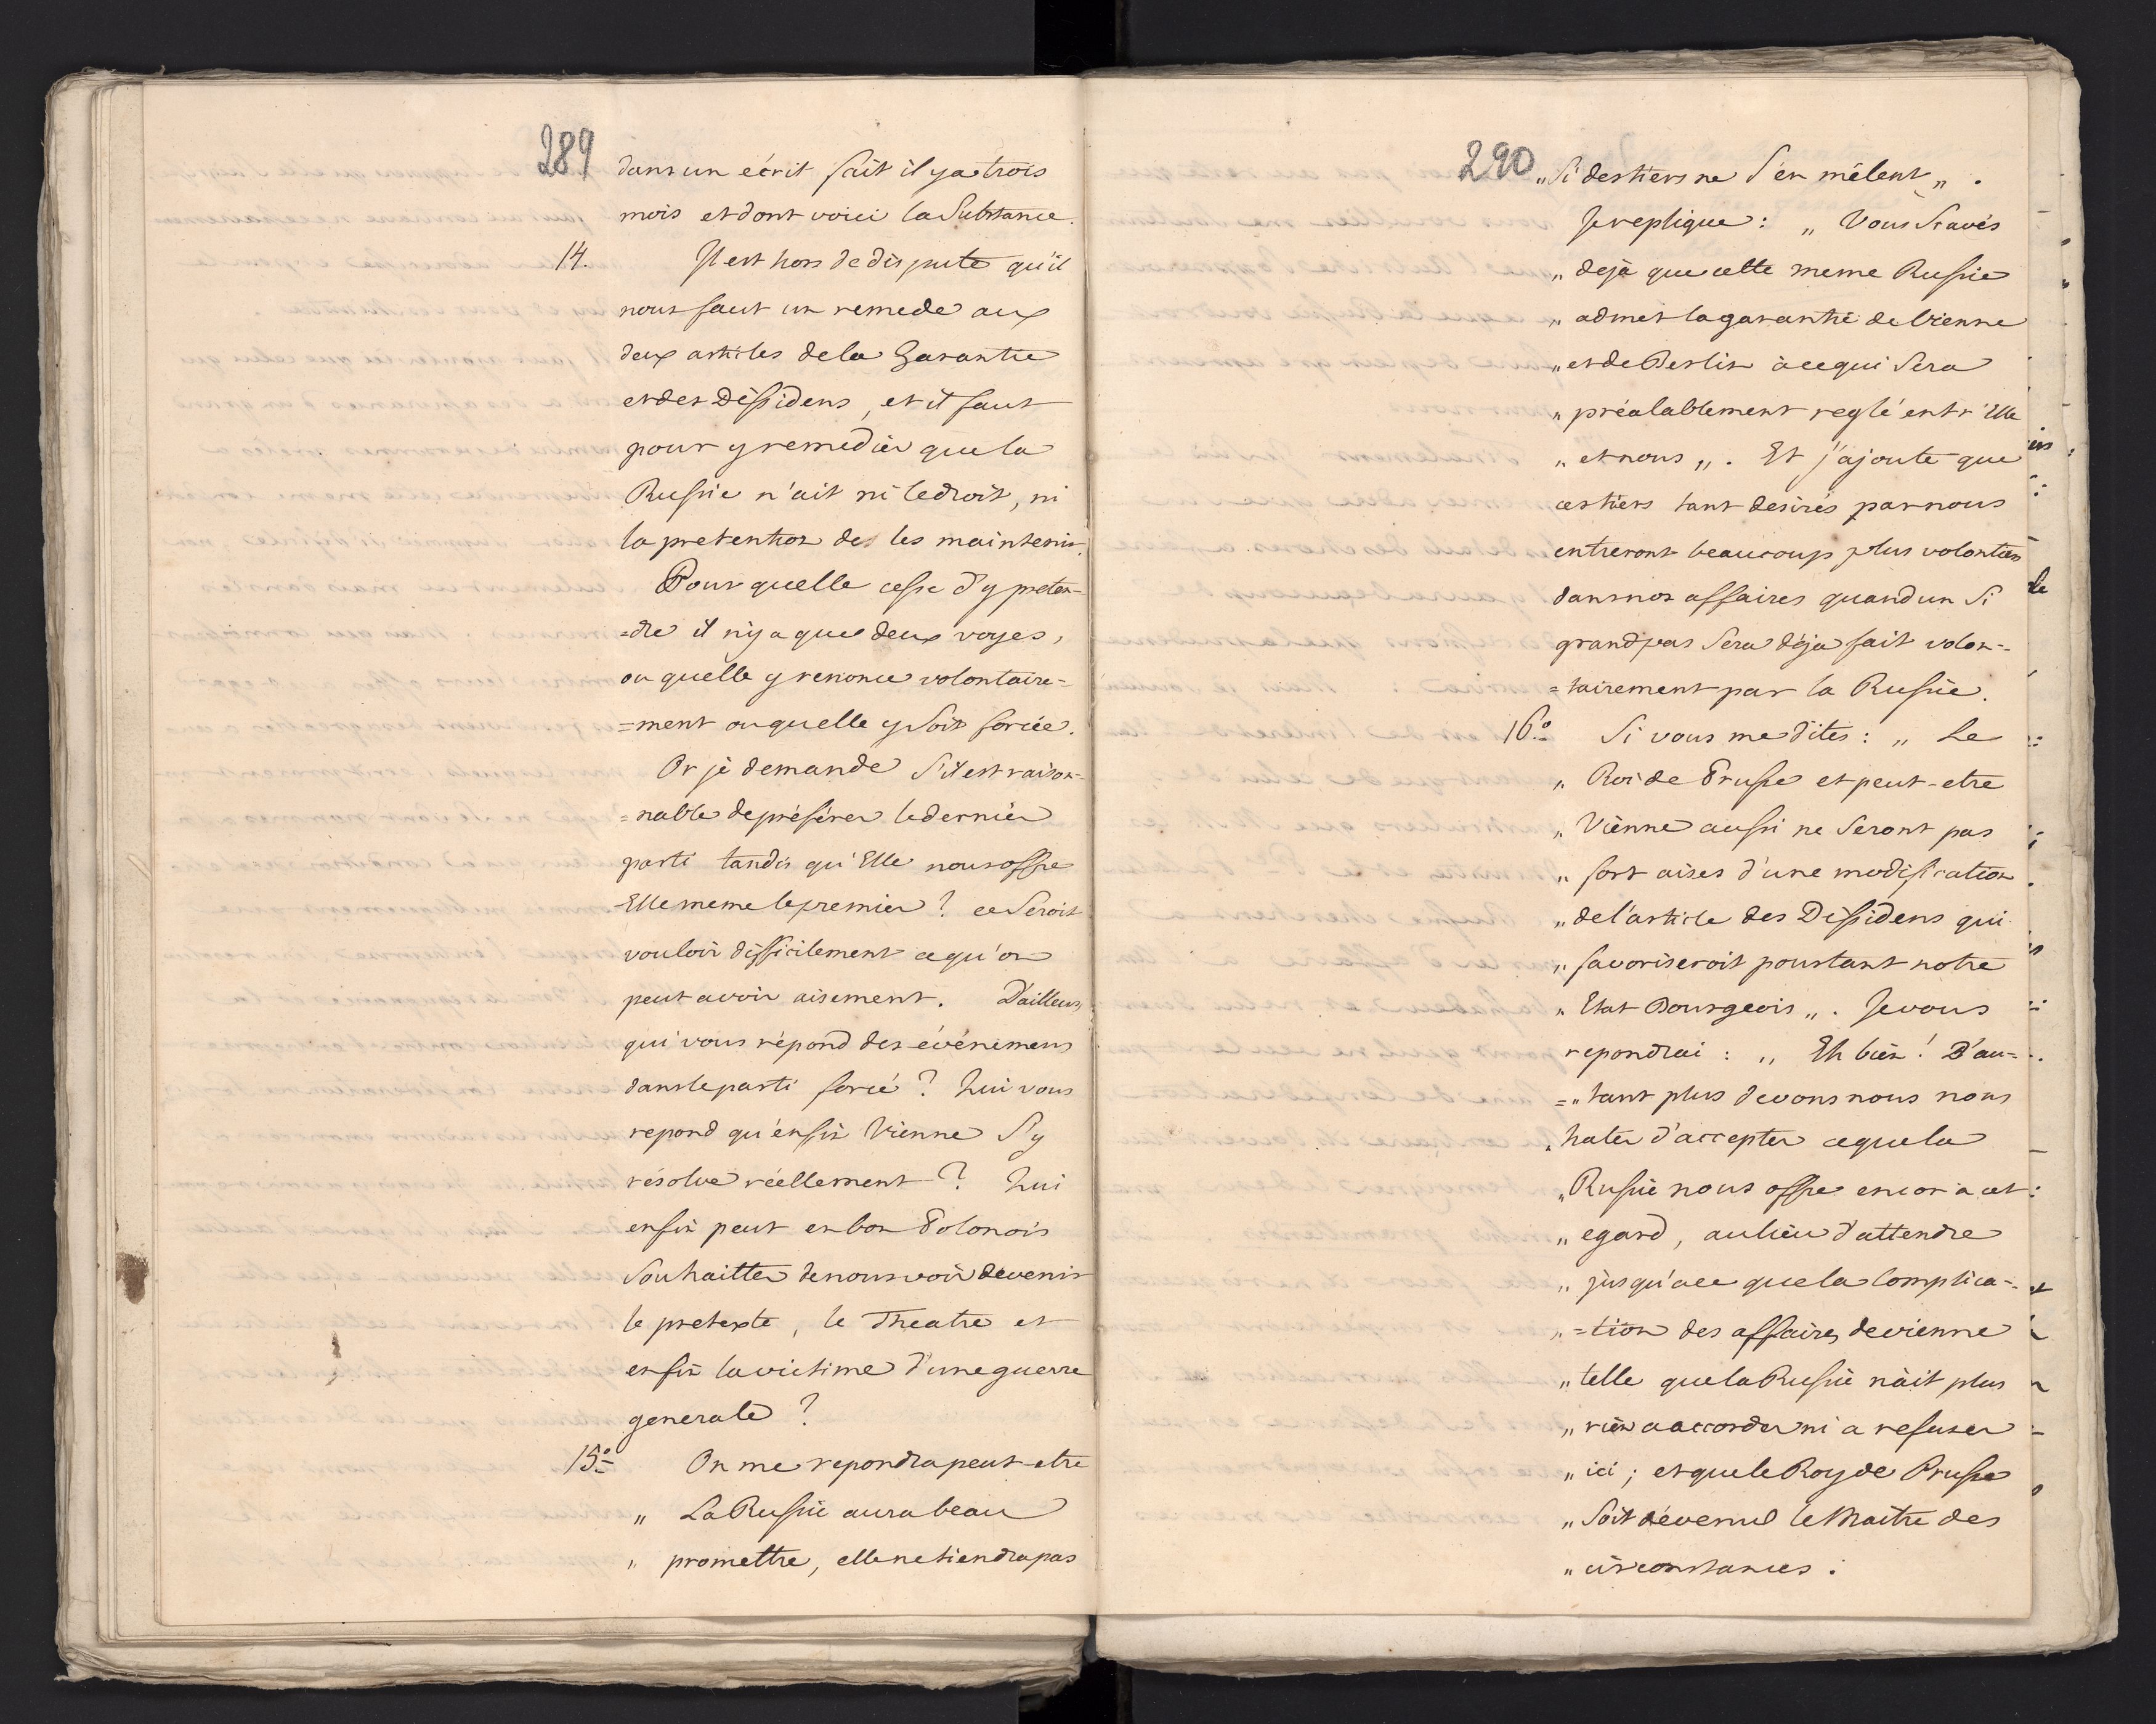 289
dans un écrit fait il ya trois
mois et dont voici la Substance.
14. Il est hors de dispute qu'il
nous faut un remede aux
deux articles dela Garantie
et des Dissidens, et il faut
pour y remedier que la
Russie n'ait ni le droit, ni
la pretention de les maintenir.
Pour quelle cesse d'y preten-
=dre il n'y a que deux voyes,
ou quelle y renonce volontaire-
=ment ou quelle y soit forcée.
Or je demande S'il est raison-
=nable de préférer le dernier
parti tandis qu'Elle nous offre
Elle meme le premier? ce Seroit
vouloir difficilement ce qu'on
peut avoir aisement. D'ailleurs
qui vous répond des événemens
dans le parti forcé? Qui vous
repond qu'enfin Vienne S'y
résolve réellement? Qui
enfin peut en bon Polonois
Souhaitter de nous voir devenir
le pretexte, le Theatre et
enfin la victime d'une guerre
generale?
15.° On me repondra peut-etre
„ La Russie aura beau
„ promettre, elle ne tiendra pas
290
„ Si des tiers ne S'en mêlent „.
Je replique: „ Vous Scavés
„ deja que cette meme Russie
„ admet la garantie de Vienne
„ et de Berlin à ce qui Sera
„ préalablement reglé entr'Elle
„ et nous „. Et j'ajoute que
ces tiers tant desirés par nous
entreront beaucoup plus volontiers
dans nos affaires quand un Si
grand pas Sera déja fait volon-=
=tairement par la Russie.
16.° Si vous me dites: „ Le
„ Roi de Prusse et peut-etre
„ Vienne aussi ne Seront pas
„ fort aises d'une modification
„ de l'article des Dissidens qui
„ favoriseroit pourtant notre
„ Etat Bourgeois „. Je vous
repondrai: „ Eh bien! D'au=
=„ tant plus devons nous nous
„ hater d'accepter ce que la
„ Russie nous offre encor a cet
„ egard, au lieu d'attendre
„ jusqu'a ce que la Complica-=
„ =tion des affaires devienne
„ telle que la Russie n'ait plus
„ rien a accorder ni a refuser
„ ici; et que le Roy de Prusse
„ Soit dévenu le Maitre des
„ circonstances.